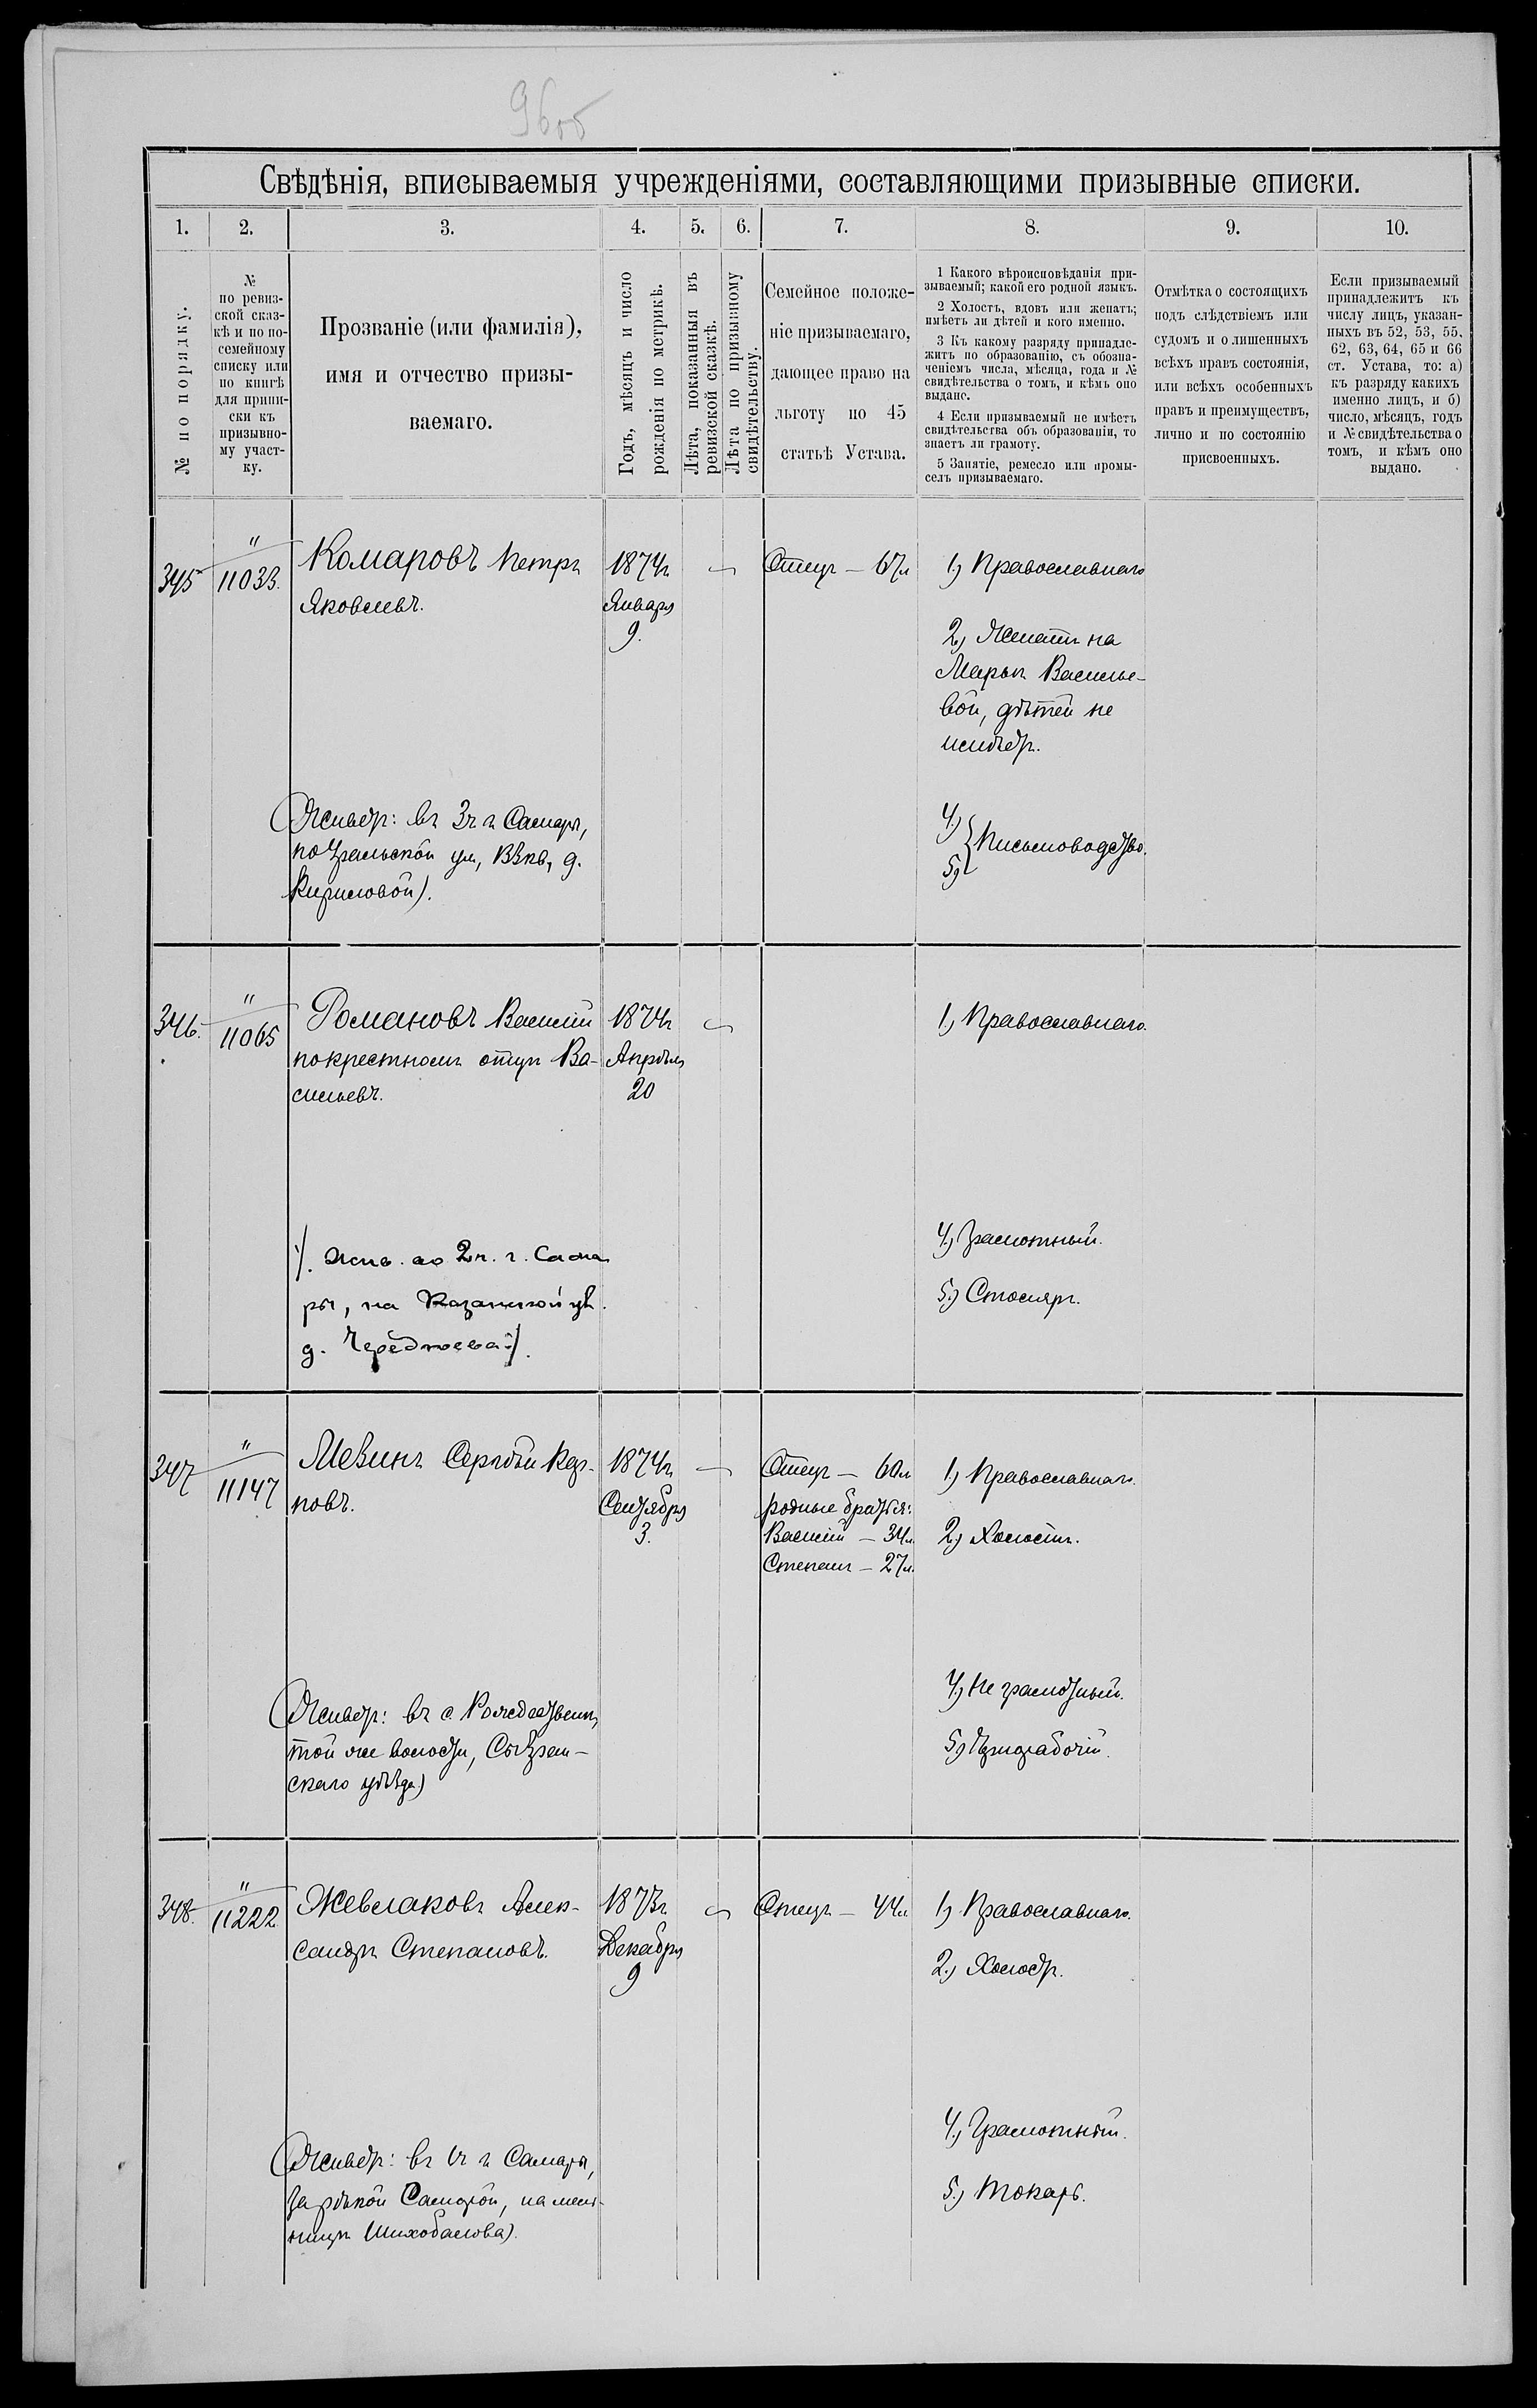 96об
Свѣдѣнія, вписываемыя учрежденіями, составляющими призывные списки.
1. 2. 3. 4. 5. 6. 7. 8. 9. 10.
№ по порядку.
№
по ревиз-
ской сказ-
кѣ и по по-
семейному
списку или
по книгѣ
для припи-
ски къ
призывно-
му участ-
ку.
Прозваніе (или фамилія),
имя и отчество призы-
ваемаго.
Годъ, мѣсяцъ и число
рожденія по метрикѣ.
Лѣта, показанныя въ
ревизской сказкѣ.
Лѣта по призывному
свидѣтельству.
Семейное положе-
ніе призываемаго,
дающее право на
льготу по 45
статьѣ Устава.
1 Какого вѣроисповѣданія при-
зываемый; какой его родной языкъ.
2 Холостъ, вдовъ или женатъ;
имѣетъ ли дѣтей и кого именно.
3 Къ какому разряду принадле-
житъ по образованію, съ обозна-
ченіемъ числа, мѣсяца, года и №
свидѣтельства о томъ, и кѣмъ оно
выдано.
4 Если призываемый не имѣетъ
свидѣтельства объ образованіи, то
знаетъ ли грамоту.
5 Занятіе, ремесло или промы-
селъ призываемаго.
Отмѣтка о состоящихъ
подъ слѣдствіемъ или
судомъ и о лишенныхъ
всѣхъ правъ состоянія,
или всѣхъ особенныхъ
правъ и преимуществъ,
лично и по состоянію
присвоенныхъ.
Если призываемый
принадлежитъ къ
числу лицъ, указан-
ныхъ въ 52, 53, 55,
62, 63, 64, 65 и 66
ст. Устава, то: а)
къ разряду какихъ
именно лицъ, и б)
число, мѣсяцъ, годъ
и № свидѣтельства о
томъ, и кѣмъ оно
выдано.
345
"
11033.
Комаровъ Петръ
Яковлевъ.
1874г
Января
9.
—
Отецъ — 67л
1) Православнаго
2) Женатъ на
Марьѣ Василье-
вой, дѣтей не
имѣетъ.
4)
5) } Письмоводство.
(Живетъ: въ 3ч г Самары,
по Уральской ул,
Кириловой).
346.
"
11065
Романовъ Василій
по крестному отцу Ва-
сильевъ.
1874г
Апрѣля
20
—
1) Православнаго.
4) Грамотный.
5.) Столяръ.
во 2ч. г. Сама
ры, на Казанской ул.
д.
347
"
11147
Мевинъ Сергѣй
повъ.
1874г
Сентября
3.
—
Отецъ — 60л
родные братья:
Василій — 34л.
Степанъ — 27л.
1) Православнаго.
2) Холостъ.
4) Не грамотный.
5)
(Живетъ: въ с. Рождественѣ,
той же волости, Сызран-
скаго уѣзда)
348.
"
11222.
Жевлаковъ Алек-
сандръ Степановъ.
1873г
Декабря
9
—
Отецъ — 44л
1) Православнаго.
2.) Холостъ.
4.) Грамотный.
5.) Токарь.
(Живетъ: въ г Самары,
за рѣкой Самарой, на мель-
ницѣ Шихобалова).